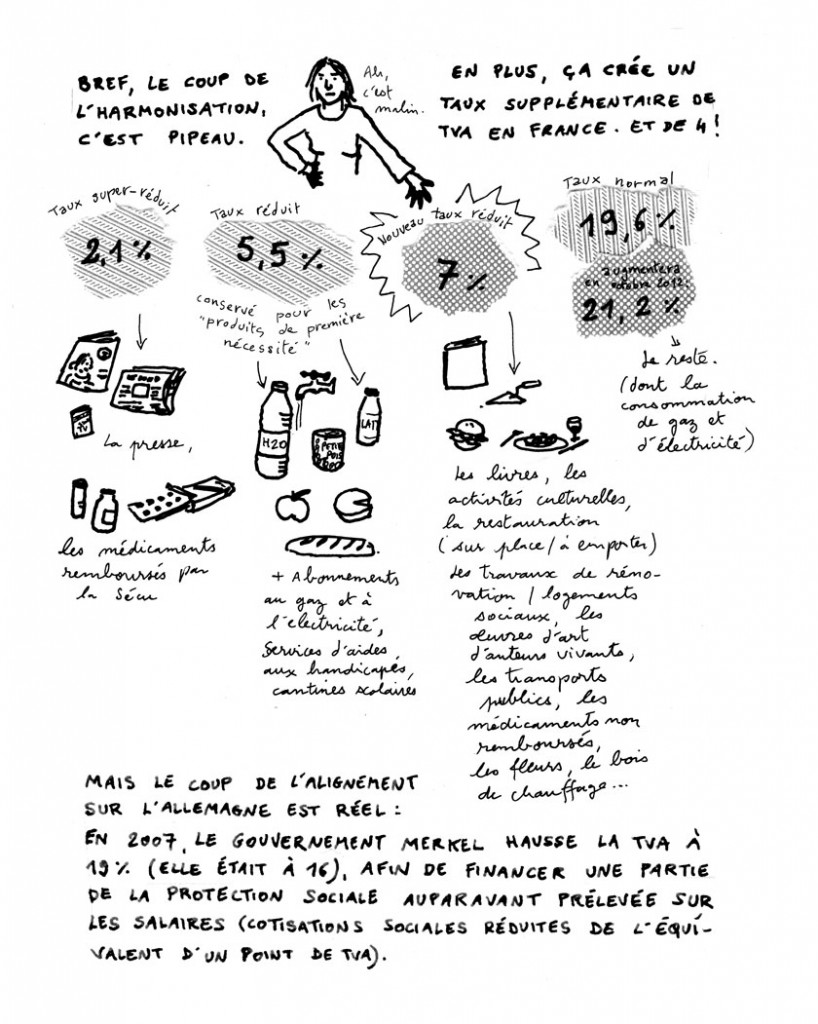 BREF, LE COUP DE
L'HARMONISATION,
C'EST PIPEAU.
Ah,
c'est
malin.
EN PLUS, ÇA CRÉE UN
TAUX SUPPLÉMENTAIRE DE
TVA EN FRANCE. ET DE 4!
Taux super-réduit
2,1 %
Taux réduit
5,5 %
conservé pour les
"produits de première
nécessité"
Nouveau taux réduit
7 %
Taux normal
19,6 %
augmentera
en octobre 2012.
21,2 %
TV
La presse,
les médicaments
remboursés par
la Sécu
H2O
PETITS
POIS
LAIT
+ Abonnements
au gaz et à
l'électricité,
Services d'aides
aux handicapés,
cantines scolaires
Les livres, les
activités culturelles,
la restauration
(sur place / à emporter)
Les travaux de réno-
vation / logements
sociaux, les
œuvres d'art
d'auteurs vivants,
les transports
publics, les
médicaments non
remboursés,
les fleurs, le bois
de chauffage...
Le reste.
(dont la
consommation
de gaz et
d'électricité)
MAIS LE COUP DE L'ALIGNEMENT
SUR L'ALLEMAGNE EST RÉEL :
EN 2007, LE GOUVERNEMENT MERKEL HAUSSE LA TVA À
19% (ELLE ÉTAIT À 16), AFIN DE FINANCER UNE PARTIE
DE LA PROTECTION SOCIALE AUPARAVANT PRÉLEVÉE SUR
LES SALAIRES (COTISATIONS SOCIALES RÉDUITES DE L'ÉQUI-
VALENT D'UN POINT DE TVA).